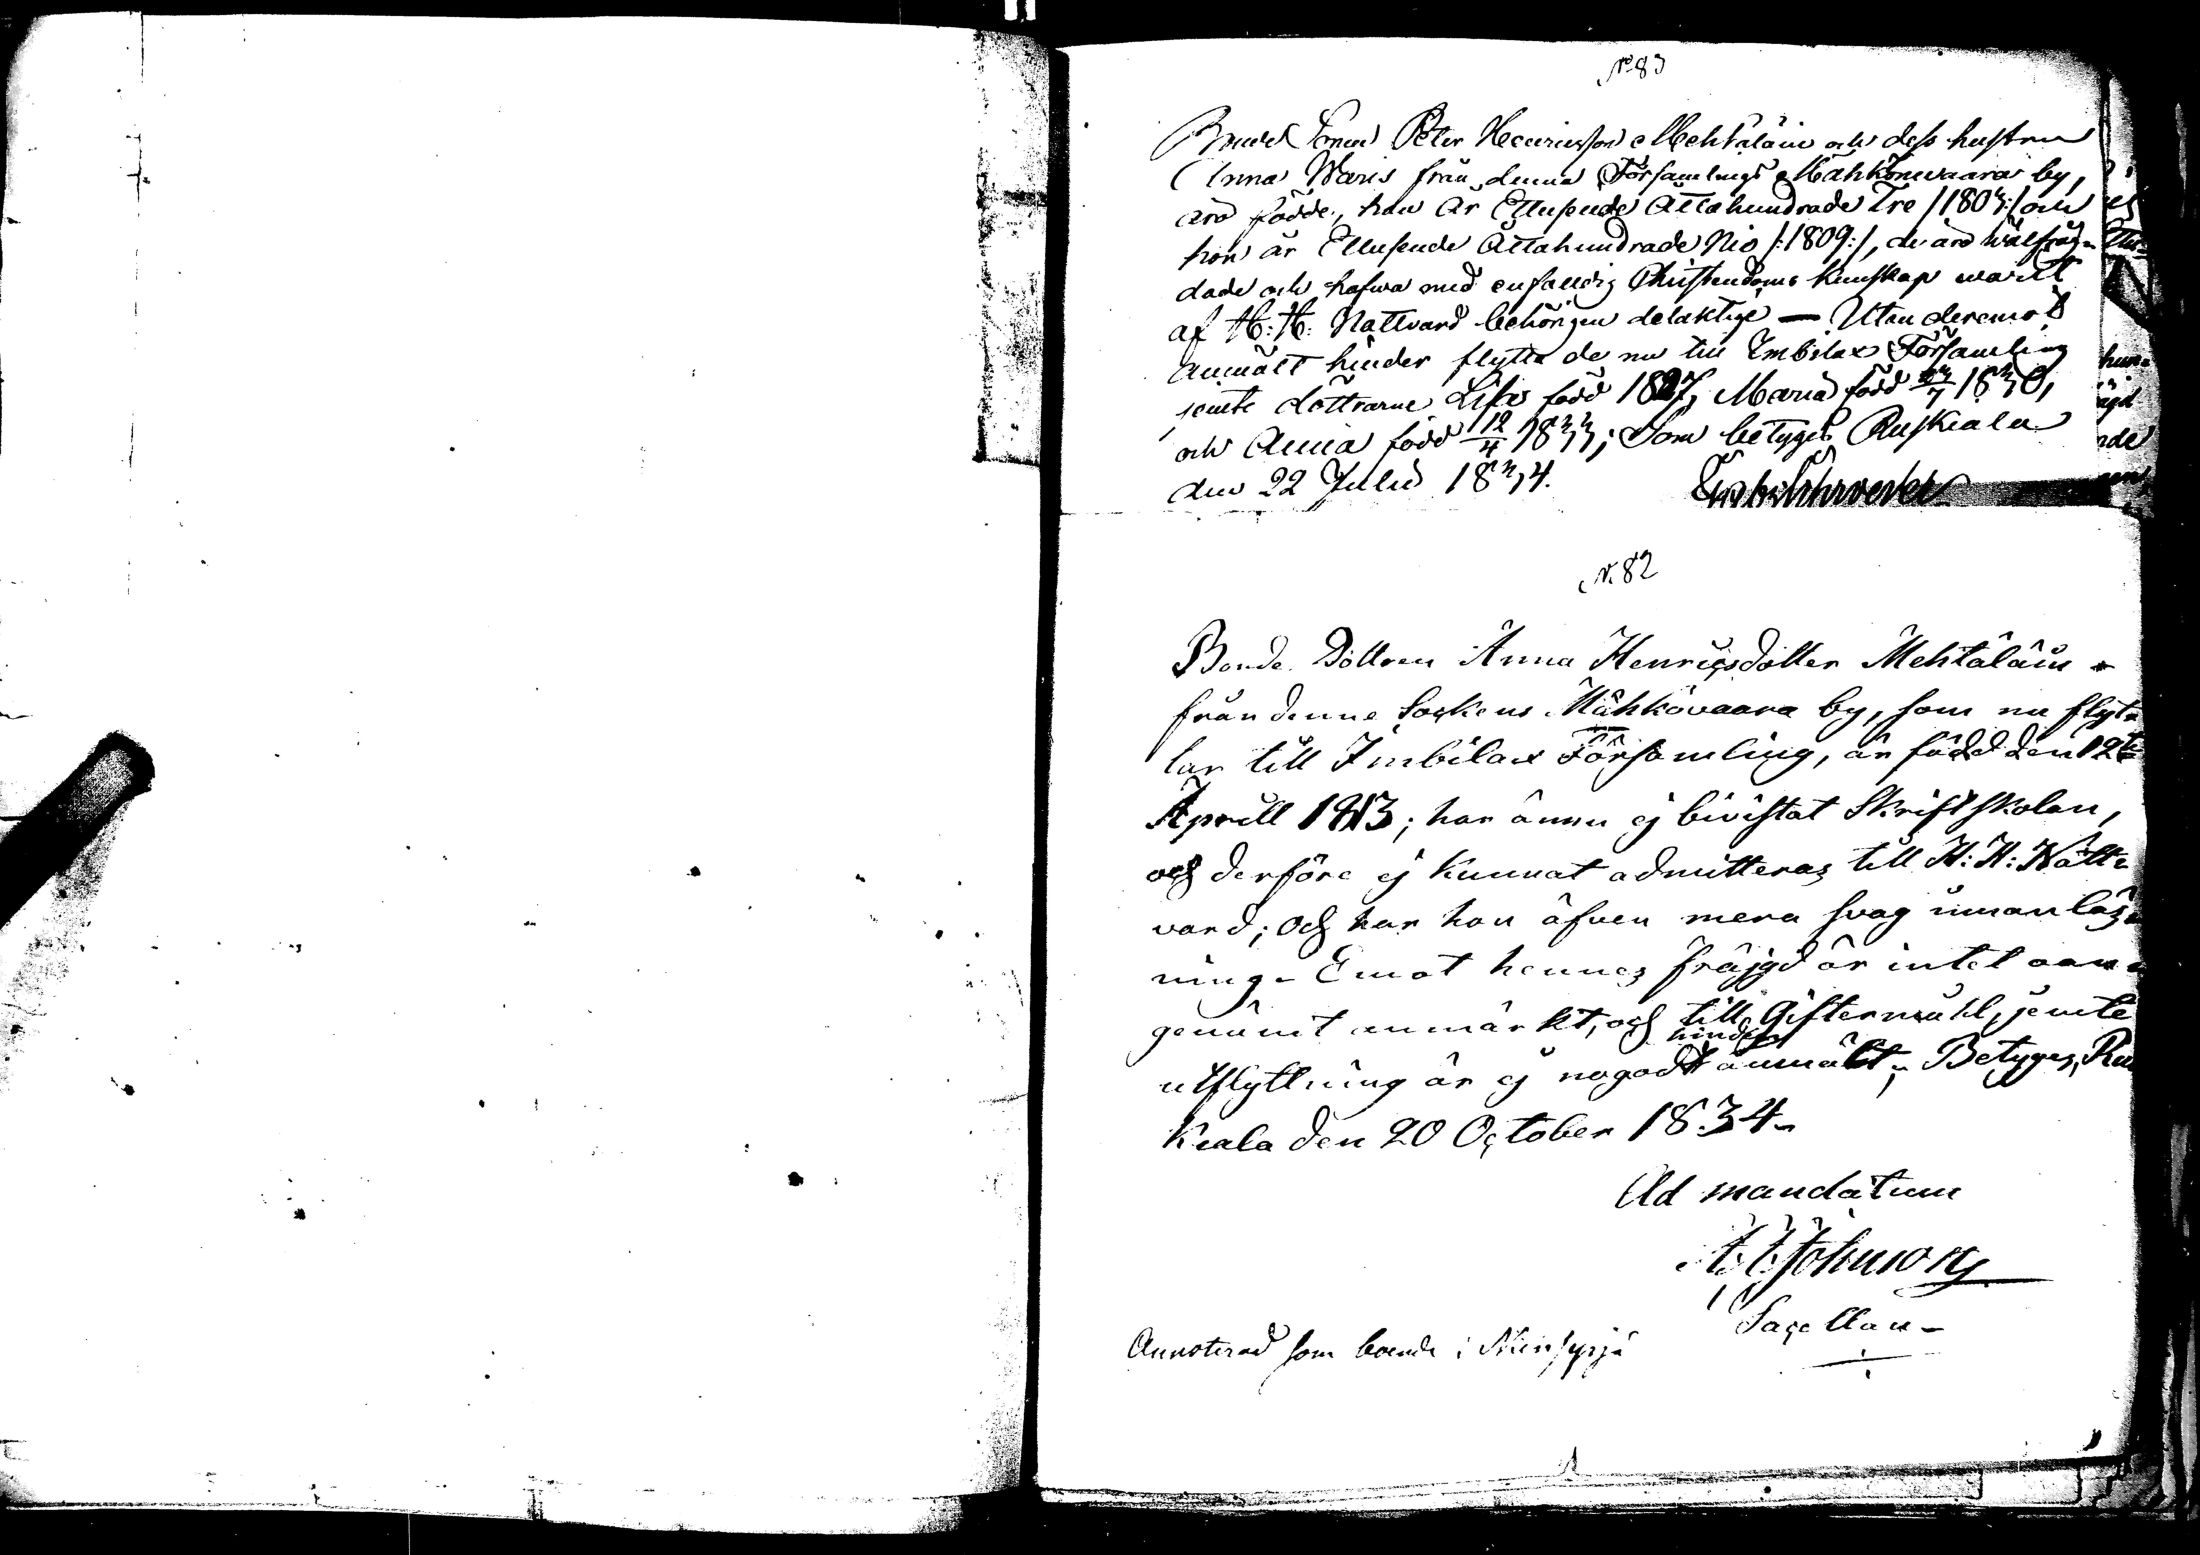 No 83
Bonde Sonen Peter Henricsson Mehtäläin och dess hustru
Anna Waris från denna Församlings Mähkönwaara by,
äro födde, han år Ettusende Åttahundrade Tre /:1803:/ och
hon år Ettusende Åttahundrade Nio /:1809:/, de äro wälfräg-
dade och hafwa med enfaldig Christendoms kunskap warit
af H: H: Nattvard behörigen delaktige — Utan deremot
anmält hinder flytta de nu till Imbilax Församling
jemte döttrarne Lisa född 1827, Maria född 1830,
och Anna född 12/4 1833; Som betygas Ruskiala
den 22 Julii 1834.
N. 82
Bonde Dottren Anna Henricsdotter Mehtäläin
från denne Sockens Mähkövaara by, som nu flyt-
tar till Imbilax Församling, är född den 12te
Aprill 1813; har ännu ej bivistat Skriftskolan,
och derföre ej kunnat admitteras till H: H: Natt-
vard; och har hon äfven mera svag innanläs-
ning - Emot hennes fräjgd är intet oan-
genämt anmärkt, och till Giftermåhl, jemte
utflyttning är ej nogadt hinder anmält; Betyges, Rus-
kiala den 20 October 1834-
Ad mandatum
Sacellan-
Annoterad som boende i